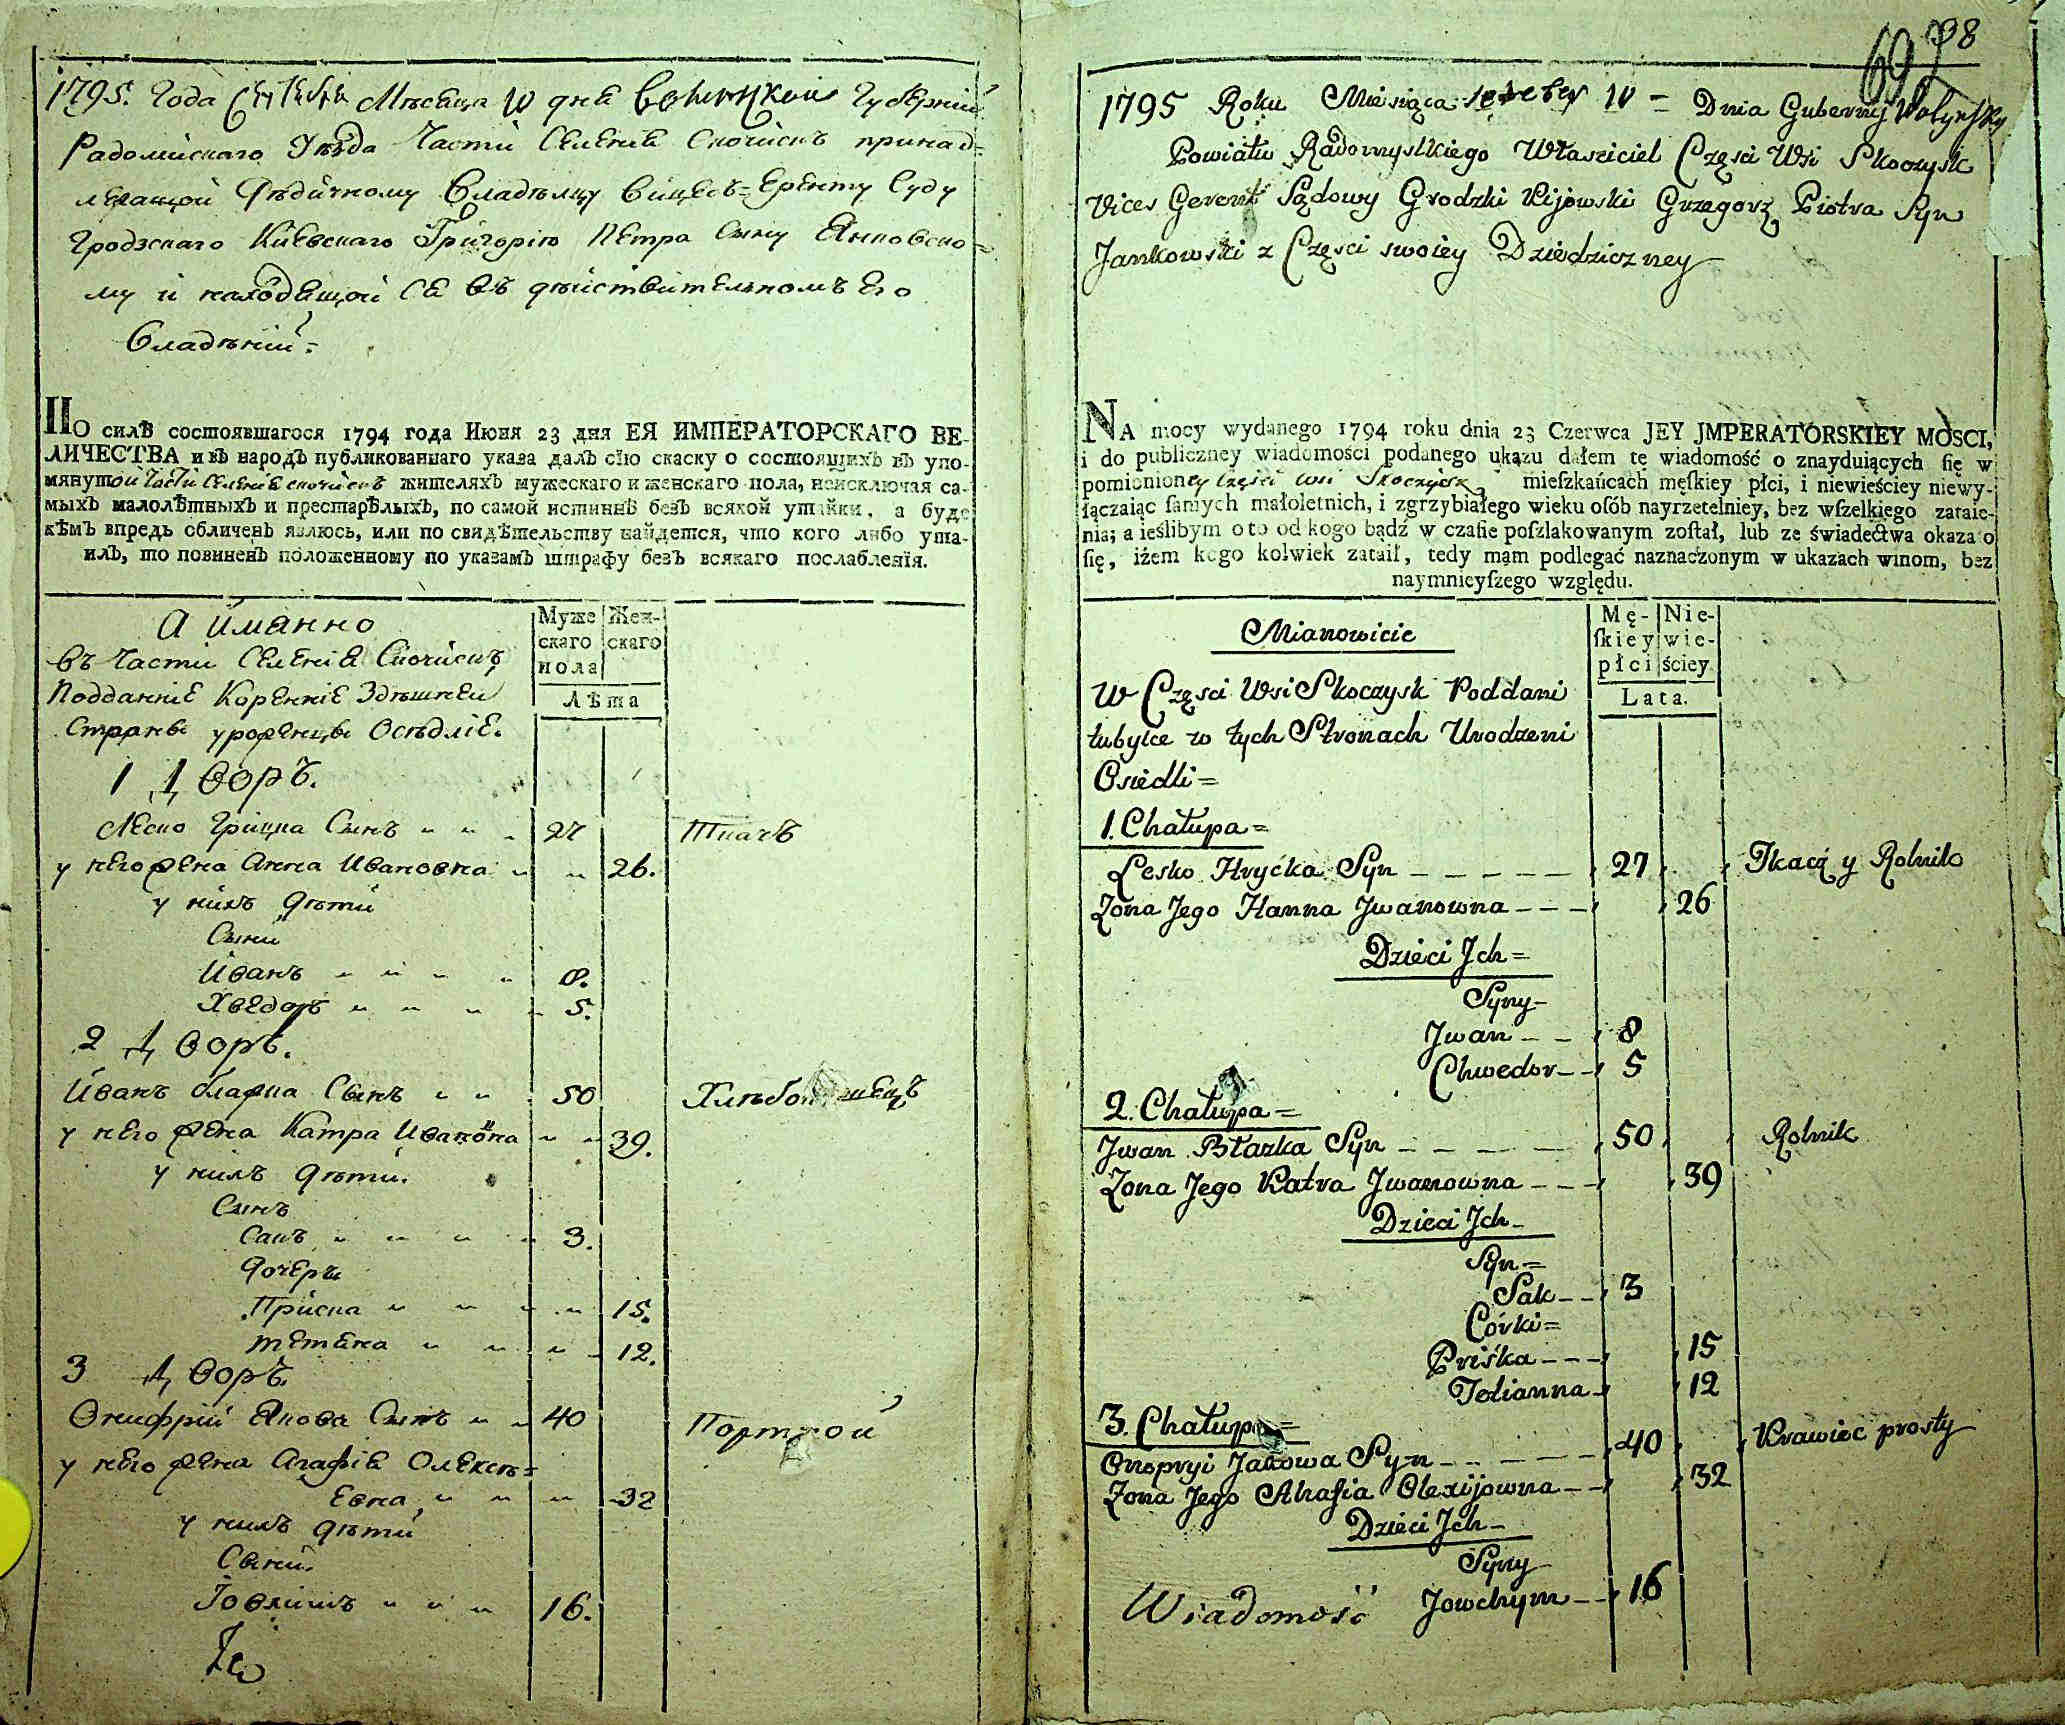 1795. Года Сентября Мѣсеца 10 днѧ Волынской Губерніи
Радомислаго Уѣзда Части Селенія Скочискъ принад=
лежащой Дѣдичному Владѣлцу Вицесъ=Ереенту Суду
Гродзскаго Кіевскаго Григорію Петра Сыну Янковско=
му и находящой ся въ дѣйствительномъ Его
Владѣніи=
ПО силѣ состоявшагося 1794 года Июня 23 дня ЕЯ ИМПЕРАТОРСКАГО ВЕ-
ЛИЧЕСТВА и въ народъ публикованнаго указа далъ сїю скаску о состоящихъ въ упо-
мянутой Части Селенія Скочискъ жителяхъ мужескаго и женскаго пола, неисключая са-
мыхъ малолѣтныхъ и престарѣлыхъ, по самой истиннѣ безъ всякой утайки, а буде
кѣмъ впредь обличенъ явлюсь, или по свидѣтельству найдется, что кого либо ута-
илъ, то повиненъ положенному по указамъ штрафу безъ всякаго послабленїя.
А Имянно
Въ Части Селенія Скочискъ
Подданніе Коренніе Здѣшнеи
Страны уроженцы Осѣдліе.
Муже
скаго
пола
Жен-
скаго
Лѣта
1 Дворъ.
Леско Грицка Сынъ 27 Ткачъ
у него жена Анна Ивановна 26.
у нихъ дѣти
Сыни
Иванъ 8.
Хведоръ 5.
2 Дворъ.
Иванъ Блажка Сынъ 50
у него жена Катра Иванов̃на 39.
у нихъ дѣти.
Сынъ
Сакъ 3.
Дочеры
Приска 15.
Тетяна 12.
3 Дворъ.
Онифрій Якова Сынъ 40 Портной
у него жена Агафія Олексѣ=
евна 32
у нихъ дѣти
Сыни.
Іовхимъ 16.
98
697
1795 Roku Miesiąca 10 = Dnia Guberny Wołynsky
Powiatu Radomyslkiego Własciciel Częsci Wsi Skoczysk
Vices Gerent Sądowy Grodzki Kijowski Grzegorz Piotra Syn
Jankowski z Częsci swoiey Dziedziczney
NA mocy wydanego 1794 roku dnia 23 Czerwca JEY JMPERATORSKIEY MOSCI,
i do publiczney wiadomości podanego ukazu dałem tę wiadomość o znayduiących ſię w
pomienioney części wsi Skoczysk mieſzkańcach męſkiey płci, i niewieściey niewy-
łączaiąc ſamych małoletnich, i zgrzybiałego wieku oſób nayrzetelniey, bez wſzelkiego zataie-
nia; a ieślibym o to od kogo bądź w czaſie poſzlakowanym zoſtał, lub ze świadectwa okaza o
ſię, iżem kogo kolwiek zataił, tedy mam podlegać naznaczonym w ukazach winom, bez
naymnieyſzego względu.
Mianowicie
Mę-
ſkiey
płci
Nie-
wie-
ściey.
Lata.
W Częsci Wsi Skoczysk Poddani
tubylce w tych Stronach Urodzeni
Osiedli=
1. Chałupa=
Lesko Hryćka Syn 27 Tkacz y Rolnik
Zona Jego Hanna Jwanowna 26
Dzieci Jch=
Syny-
Jwan 8
Chwedor 5
2. Chałupa=
Jwan Błazka Syn 50 Rolnik
Zona Jego Katra Jwanowna 39
Dzieci Jch-
Syn=
Sak 3
Córki=
Priśka 15
Tetianna 12
3. Chałupa=
Onopryi Jakowa Syn 40 Krawiec prosty
Zona Jego Ahafia Olexijowna 32
Dzieci Jch-
Syny
Jowchym 16
Wiadomość